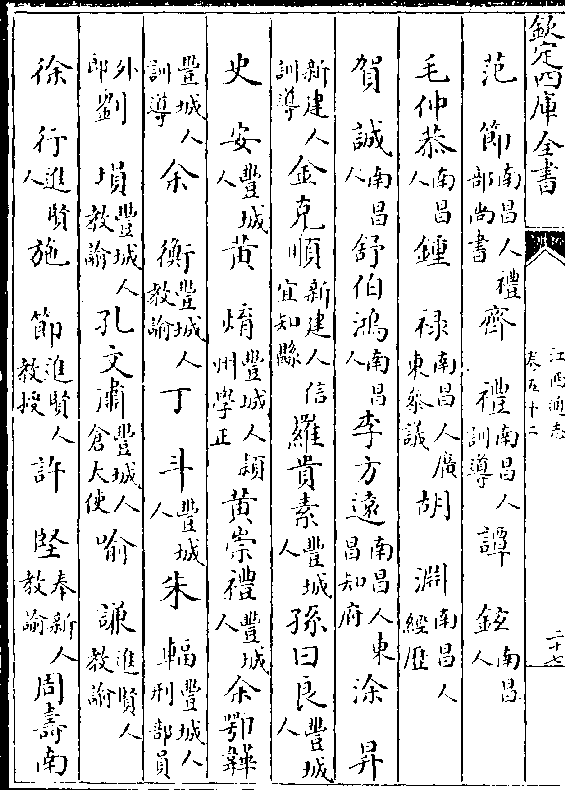 欽定四庫全書
江西通志
卷五十二
二十七
范節南昌人禮部尚書齊禮南昌人訓導譚鉉南昌人
毛仲恭南昌人鍾祿南昌人廣東參議胡淵南昌人經歷
賀誠南昌人舒伯鴻南昌人李方遠南昌人東昌知府涂昇
新建人訓導金克順新建人信宜知縣羅貴素豐城人孫曰良豐城人
史安豐城人黃堉豐城人潁州學正黃崇禮豐城人余鄂韡
豐城人訓導余衡豐城人教諭丁斗豐城人朱輻豐城人刑部員
外郎劉塤豐城人教諭孔文肅豐城人倉大使喻謙進賢人教諭
徐行進賢人施節進賢人教授許堅奉新人教諭周壽南